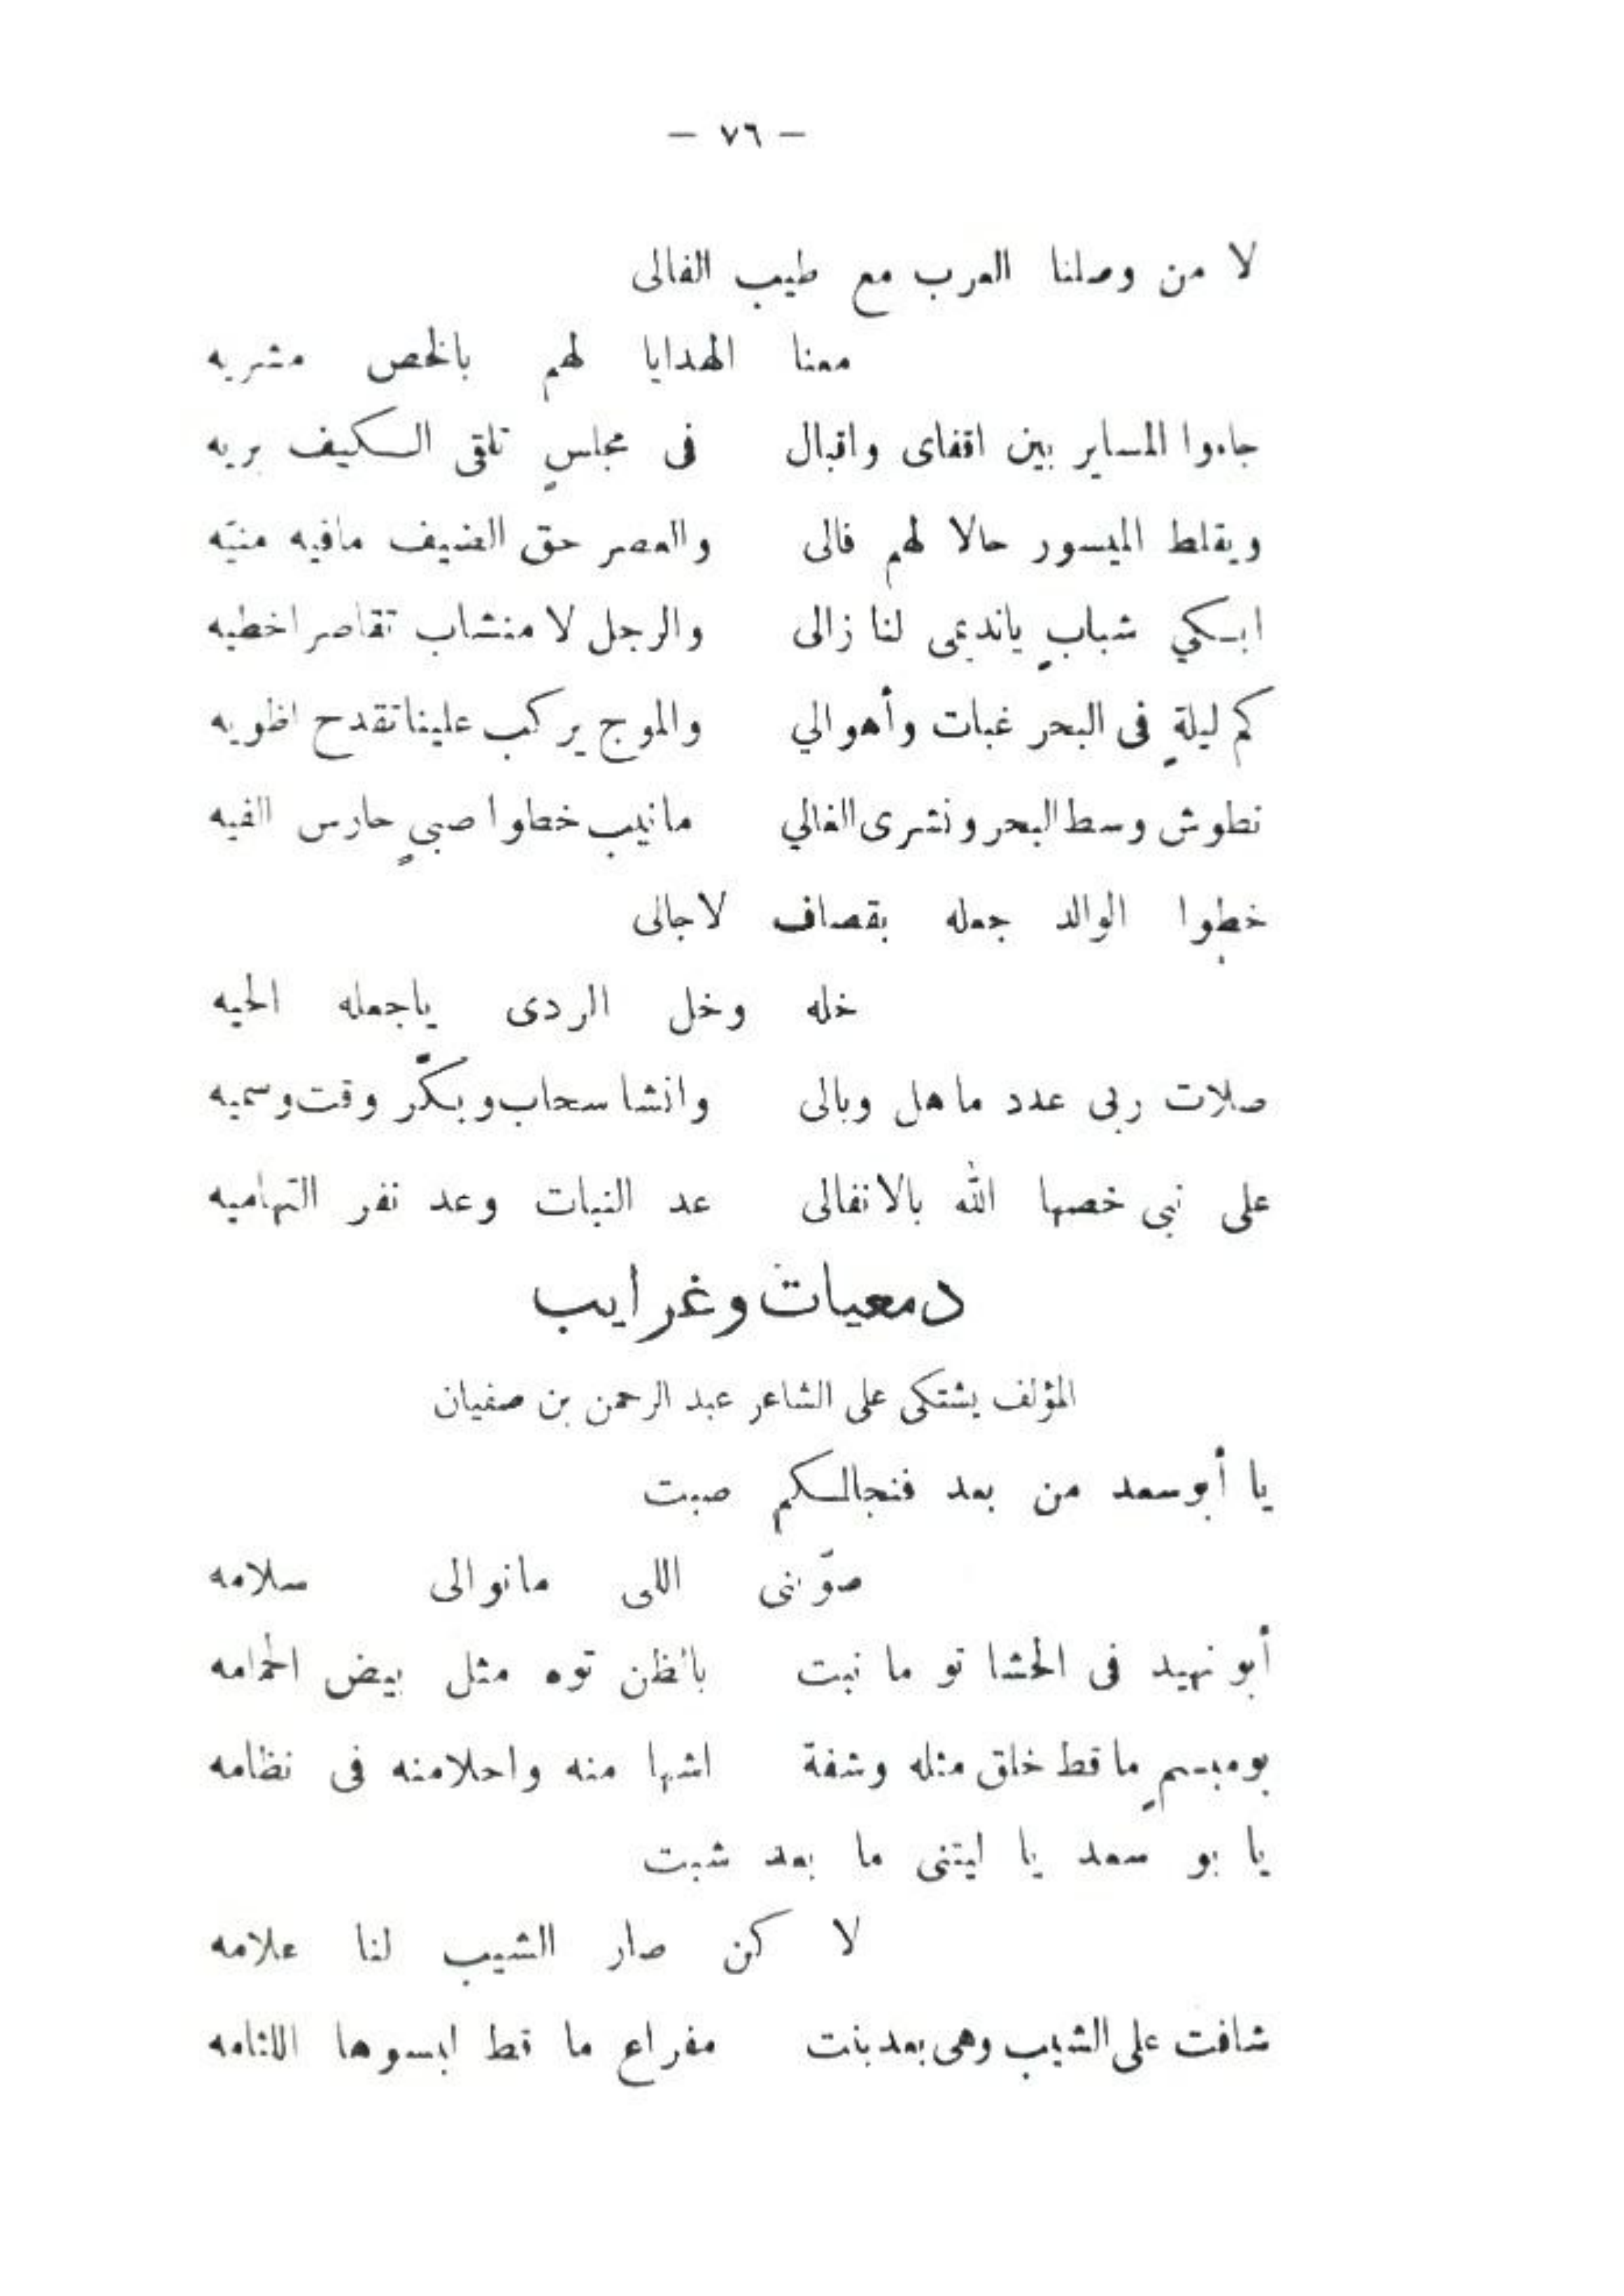 — ٧٦ —
لا من وصلنا العرب مع طيب الفالى
معنا الهدايا لهم بالخص مشريه
جاءوا المساير بين اقفاى واقبال فى مجلسٍ تلقى السكيف بريه
ويقلط الميسور حالا لهم فالى والعصر حق الضيف مافيه منيّه
ابسكي شبابٍ ياندیمى لنا زالى والرجل لا منشاب تقاصر اخطيه
كم ليلةٍ فى البحر غبات وأهوالي والموج يركب علينا تقدح اظويه
نطوش وسط البحر ونشرى الغالي مانيب خطوا صبيٍ حارس الفيه
خطوا الوالد جعله بقصاف لاجالى
خله وخل الردى ياجعله الحيه
صلات ربى عدد ماهل وبالى وانشا سحاب وبكّر وقت وسميه
على نبى خصها الله بالانفالى عد النبات وعد نفر التهاميه
دمعيات وغرايب
المؤلف يشتكى على الشاعر عبد الرحمن بن صفيان
يا أبوسعد من بعد فنجالكم صبت
صوّبنى اللى مانوالى سلامه
أبو نهيد فى الحشا تو ما نبت بالظن توه مثل بيض الحمامه
بومبسمٍ ماقط خلق مثله وشفة اشها منه واحلامنه فى نظامه
يا بو سعد يا ليتنى ما بعد شبت
لا كن صار الشيب لنا علامه
شافت على الشيب وهى بعد بنت مفراع ما قط ابسوها اللثامه